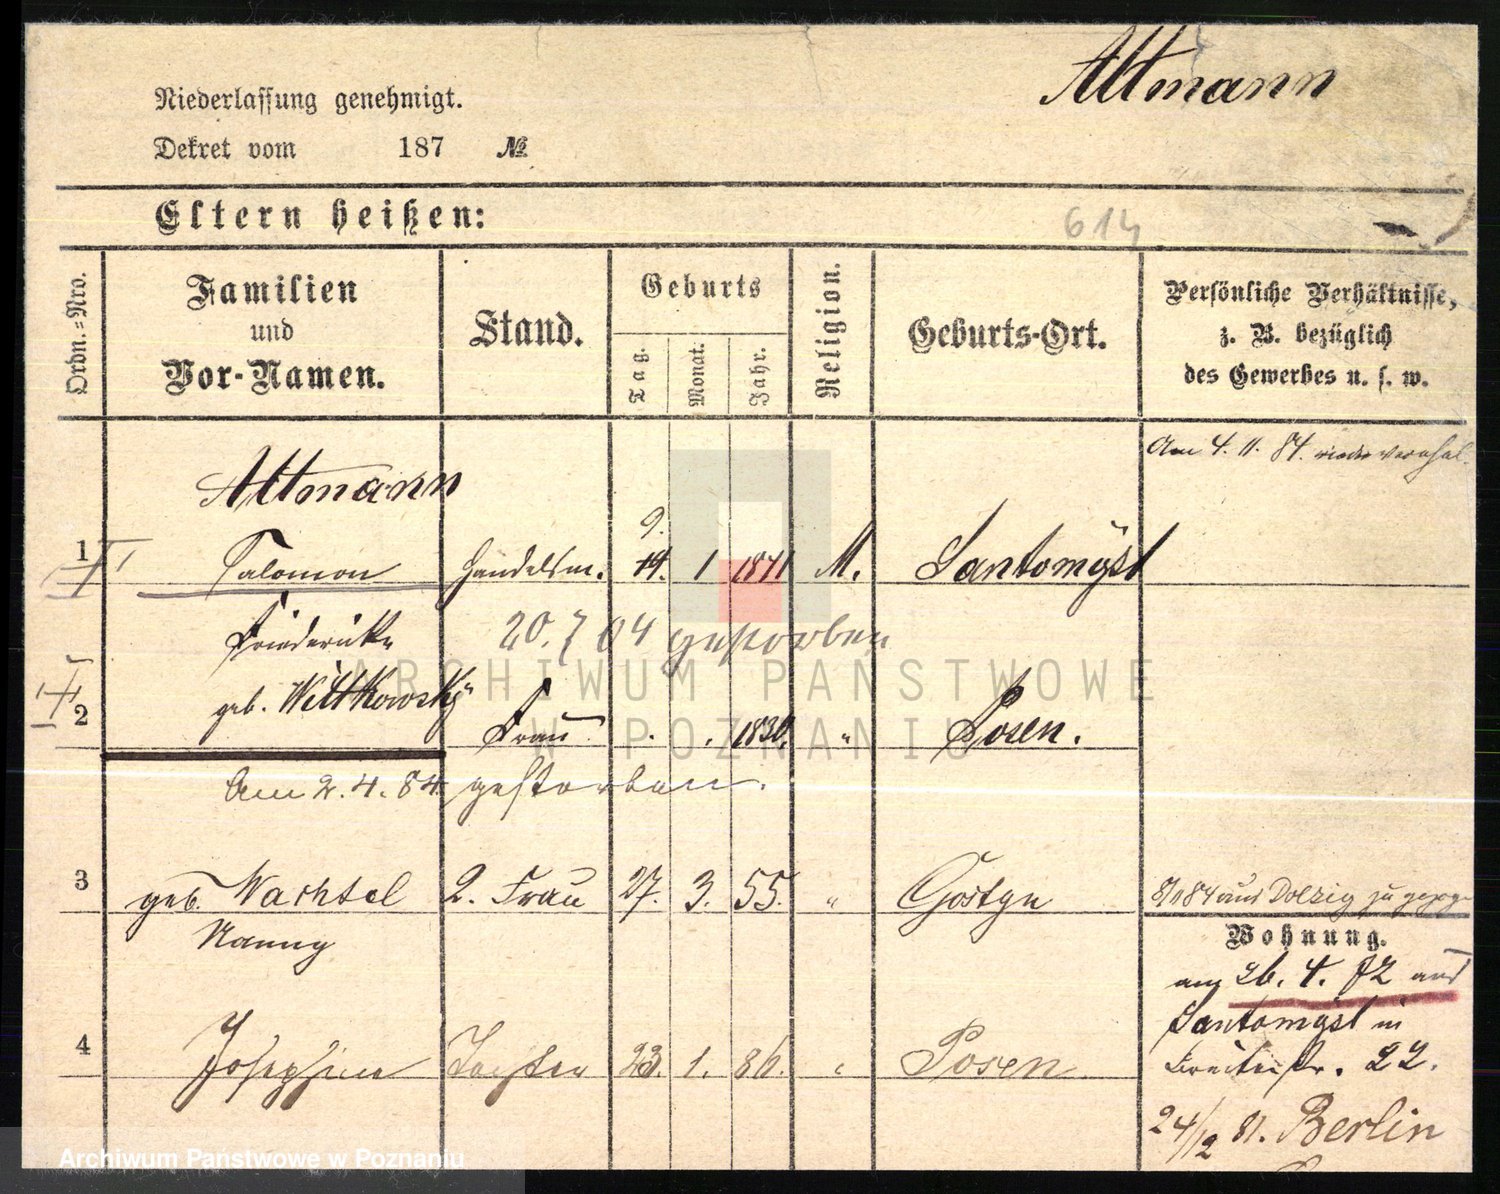 Altmann
Niederlassung genehmigt.
Dekret vom 187 №
Eltern heißen:
614
Ordn.=Nro.
Familien
und
Vor-Namen.
Stand.
Geburts
Tag.
Monat.
Jahr.
Religion.
Geburts-Ort.
Persönliche Verhältnisse,
z. B. bezüglich
des Gewerbes u. s. w.
Am 4. 11. 84. wieder verehel.
Altmann
9.
1 Salomon Handelsm. 19. 1 1841 M. Santomysl
Friederike 20. 7 04 gestorben
geb. Wittkowsky
2 Frau . . 1830. " Posen.
Am 2. 4. 84. gestorben.
3 geb. Wachtel 2. Frau 27. 3. 55. " Gostyn
Nanny
8/11 84 aus Dolzig
Wohnung.
am 26. 4. 72 aus
Santomysl in
Breitestr. 22.
4 Josephine Tochter 23. 1. 86. " Posen
24/12 81. Berlin
ARCHIWUM PAŃSTWOWE
W POZNANIU
Archiwum Państwowe w Poznaniu